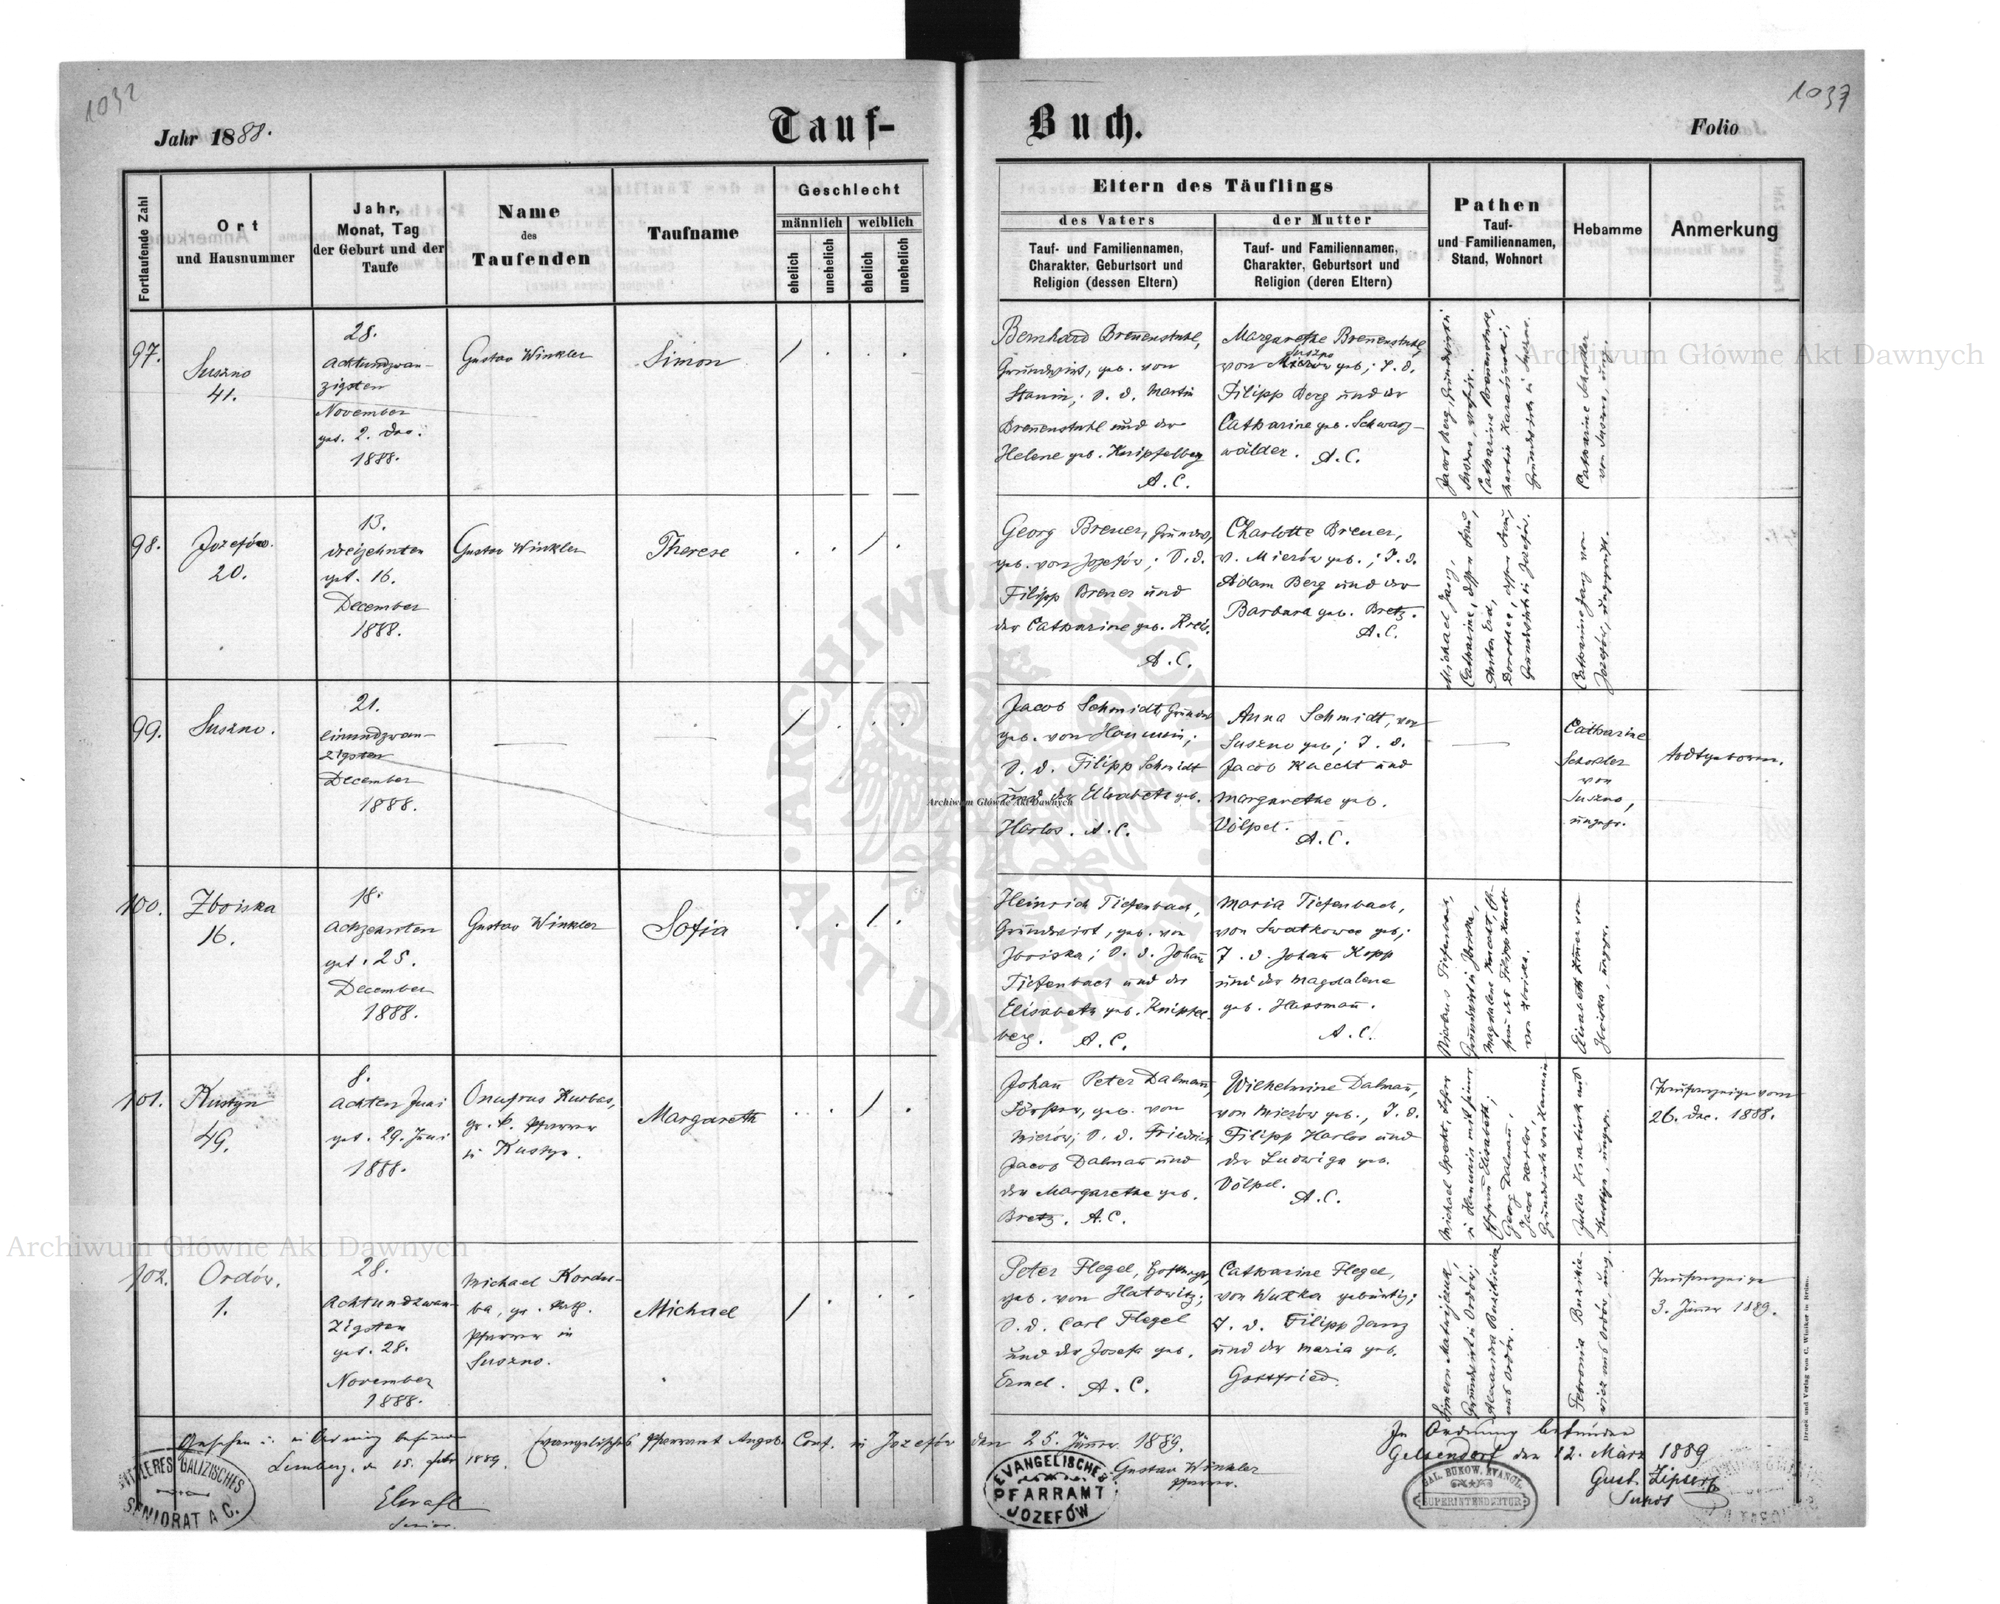 1032
1037
Jahr 1888.
Tauf-
Buch.
Folio
Fortlaufende Zahl
Ort
und Hausnummer
Jahr,
Monat, Tag
der Geburt und der
Taufe
Name
des
Taufenden
Taufname
Geschlecht
männlich
weiblich
ehelich
unehelich
ehelich
unehelich
Eltern des Täuflings
des Vaters
der Mutter
Tauf- und Familiennamen,
Charakter, Geburtsort und
Religion (dessen Eltern)
Tauf- und Familiennamen,
Charakter, Geburtsort und
Religion (deren Eltern)
Pathen
Tauf-
und Familiennamen,
Stand, Wohnort
Hebamme
Anmerkung
97.
Suszno
41.
28.
Achtundzwan-
zigsten
November
get. 2. Dec.
1888.
Gustav Winkler
Simon
Bernhard Breuenstuhl,
Grundwirt, geb. von
Stanin; S. d. Martin
Breuenstuhl und der
Helene geb. Knipfelberg
A.C.
Margarethe Breuenstuhl,
Suszno
von geb; T. d.
Filipp Berg und der
Catharine geb. Schwarz-
wälder. A.C.
Jacob Berg, Grundwirt in
Catharine Breuenstuhl,
Grundwirth in Suszno.
Catharine Scheller
von Suszno, ungepr.
98.
Jozefów.
20.
13.
dreizehnten
get. 16.
December
1888.
Gustav Winkler
Therese
Georg Breuer, Grundw,
geb. von Jozefów; S. d.
Filipp Breuer und
der Catharine geb. Kreis.
A.C.
Charlotte Breuer,
v. Mierów geb.; T. d.
Adam Berg und der
Barbara geb. Bretz.
A.C.
Michael Janz,
Catharine, dessen Frau,
Dorothea, dessen Frau,
Grundwirthe in Jozefów.
Catharine Janz von
Jozefów, ungeprüft.
99.
Suszno.
21.
Einundzwan-
zigsten
December
1888.
Jacob Schmidt, Grundw
geb. von Hanunin;
S. d. Filipp Schmidt
und der Elisabeth geb.
Harlos. A.C.
Anna Schmidt, von
Suszno geb; T. d.
Jacob Knecht und
Margarethe geb.
Völpel.
A.C.
Catharine
Scheller
von
Suszno,
ungepr.
todtgeboren.
100.
Zboiska
16.
18.
Achzehnten
get. 25.
December
1888.
Gustav Winkler
Sofia
Heinrich Tiefenbach,
Grundwirt, geb. von
Zboiska; S. d. Johann
Tiefenbach und der
Elisabeth geb. Knipfel-
berg. A.C.
Maria Tiefenbach,
von Sewatkowce geb;
T. d. Johann Kopp
und der Magdalena
geb. Hassmann.
A.C.
Tiefenbach,
Grundwirt in Zboiska,
Magdalena Knecht, Eh-
frau des Filipp Knecht
von Zboiska.
Elisabeth von
Zboiska, ungepr.
101.
Kustyn
49.
8.
Achten Juni
get. 29. Juni
1888.
Onufrius Kurbas,
gr. k. Pfarrer
in Kustyn.
Margareth
Johann Peter Dalmann,
Förster, geb. von
Mierów; S. d. Friedrich
Jacob Dalmann und
der Margarethe geb.
Bretz. A.C.
Wilhelmine Dalmann,
von Mierów geb., T. d.
Filipp Harlos und
der Ludwiga geb.
Völpel.
A.C.
Michael Specht, Lehrer
in Hanunin mit seiner
Ehefrau Elisabeth;
Georg Dalmann,
Jacob Harlos,
Grundwirth von Hanunin
Julia Ignatiuk aus
Kustyn, ungepr.
Taufanzeige vom
26. Dec. 1888.
102.
Ordów.
1.
28.
Achtundzwan-
zigsten
get. 28.
November
1888.
Michael Kordu-
ba, gr. kath.
Pfarrer in
Suszno.
Michael
Peter Flegel,
geb. von Hatowitz;
S. d. Carl Flegel
und der Josefa geb.
Ermel. A.C.
Catharine Flegel,
von Wutka gebürtig;
T. d. Filipp Janz
und der Maria geb.
Gottfried.
Szymon Matwijczuk,
Grundwirt in Ordów;
Alexandra
aus Ordów.
Petronia
aus Ordów, ung.
Taufanzeige
3. Jänner 1889.
Gesehen u. in Ordnung befunden
Lemberg, d. 15. Febr 1889.
Senior.
Evangelisches Pfarramt Augsb. Conf. in Jozefów den 25. Jänner 1889.
Gustav Winkler
Pfarrer.
In Ordnung befunden
Gelsendorf den 12. März 1889
Gust. Zipser
MITTLERES GALIZISCHES
SENIORAT A C.
EVANGELISCHES
PFARRAMT
JOZEFÓW
GAL. BUKOW. EVANGL.
SUPERINTENDENTUR
Druck und Verlag von C. Winiker in Brünn.
Archiwum Główne Akt Dawnych
Archiwum Główne Akt Dawnych
Archiwum Główne Akt Dawnych
ARCHIWUM GŁÓWNE
AKT DAWNYCH